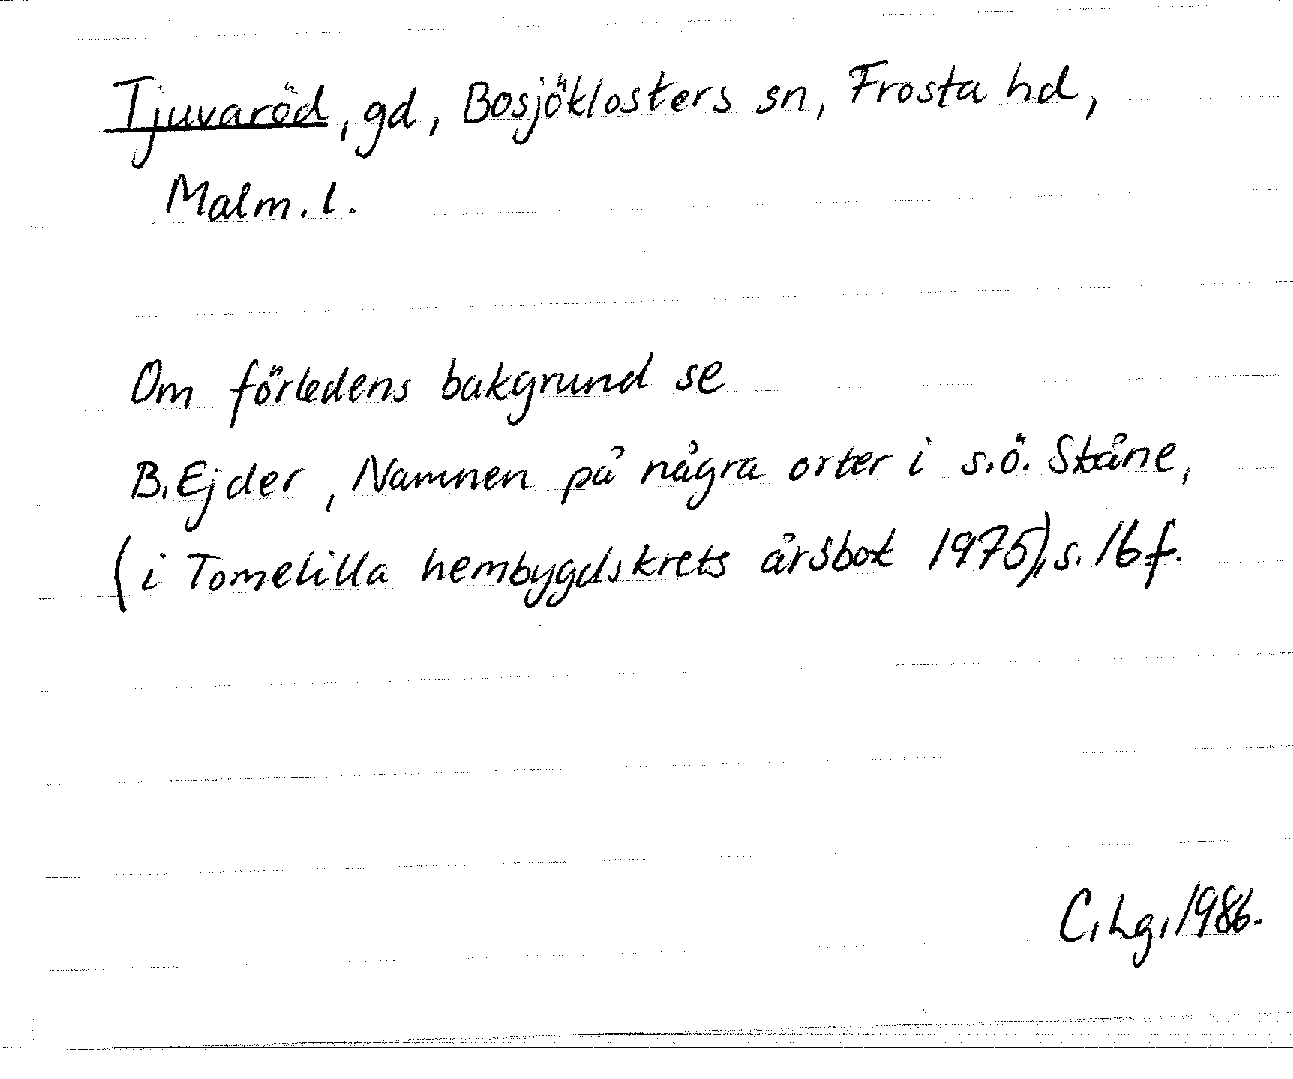 Tjuvaröd, gd, Bosjöklosters sn, Frosta hd,
Malm. l.
Om förledens bakgrund se
B. Ejder, Namnen på några orter i s.ö. Skåne,
(i Tomelilla hembygdskrets årsbok 1975), s. 16 f.
C. Lg. 1986.